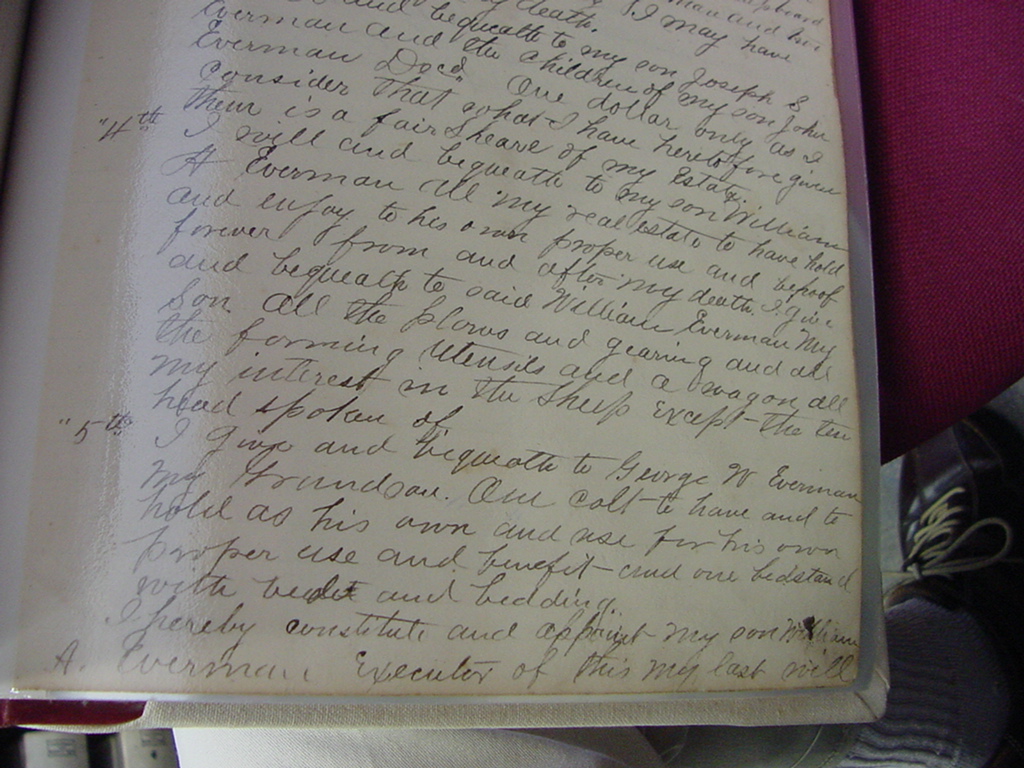 my death. I may have
and bequeath to my son Joseph S
Everman and the children of my son John
Everman Docd. One dollar only as I
consider that what I have heretofore given
them is a fair sheare of my Estate.
"4th I will and bequeath to my son William
A Everman All my real estate to have hold
and enjoy to his own proper use and behoof
forever from and after my death. I give
and bequeath to said William Everman my
Son all the plows and gearing and all
the farming utensils and a wagon all
my interest in the sheep except the ten
head spoken of
"5th I give and bequeath to George W Everman
my Grandson. One colt to have and to
hold as his own and use for his own
proper use and benefit and one bedstead
with bedt and bedding.
I hereby constitute and appoint my son William
A. Everman Executor of this my last will